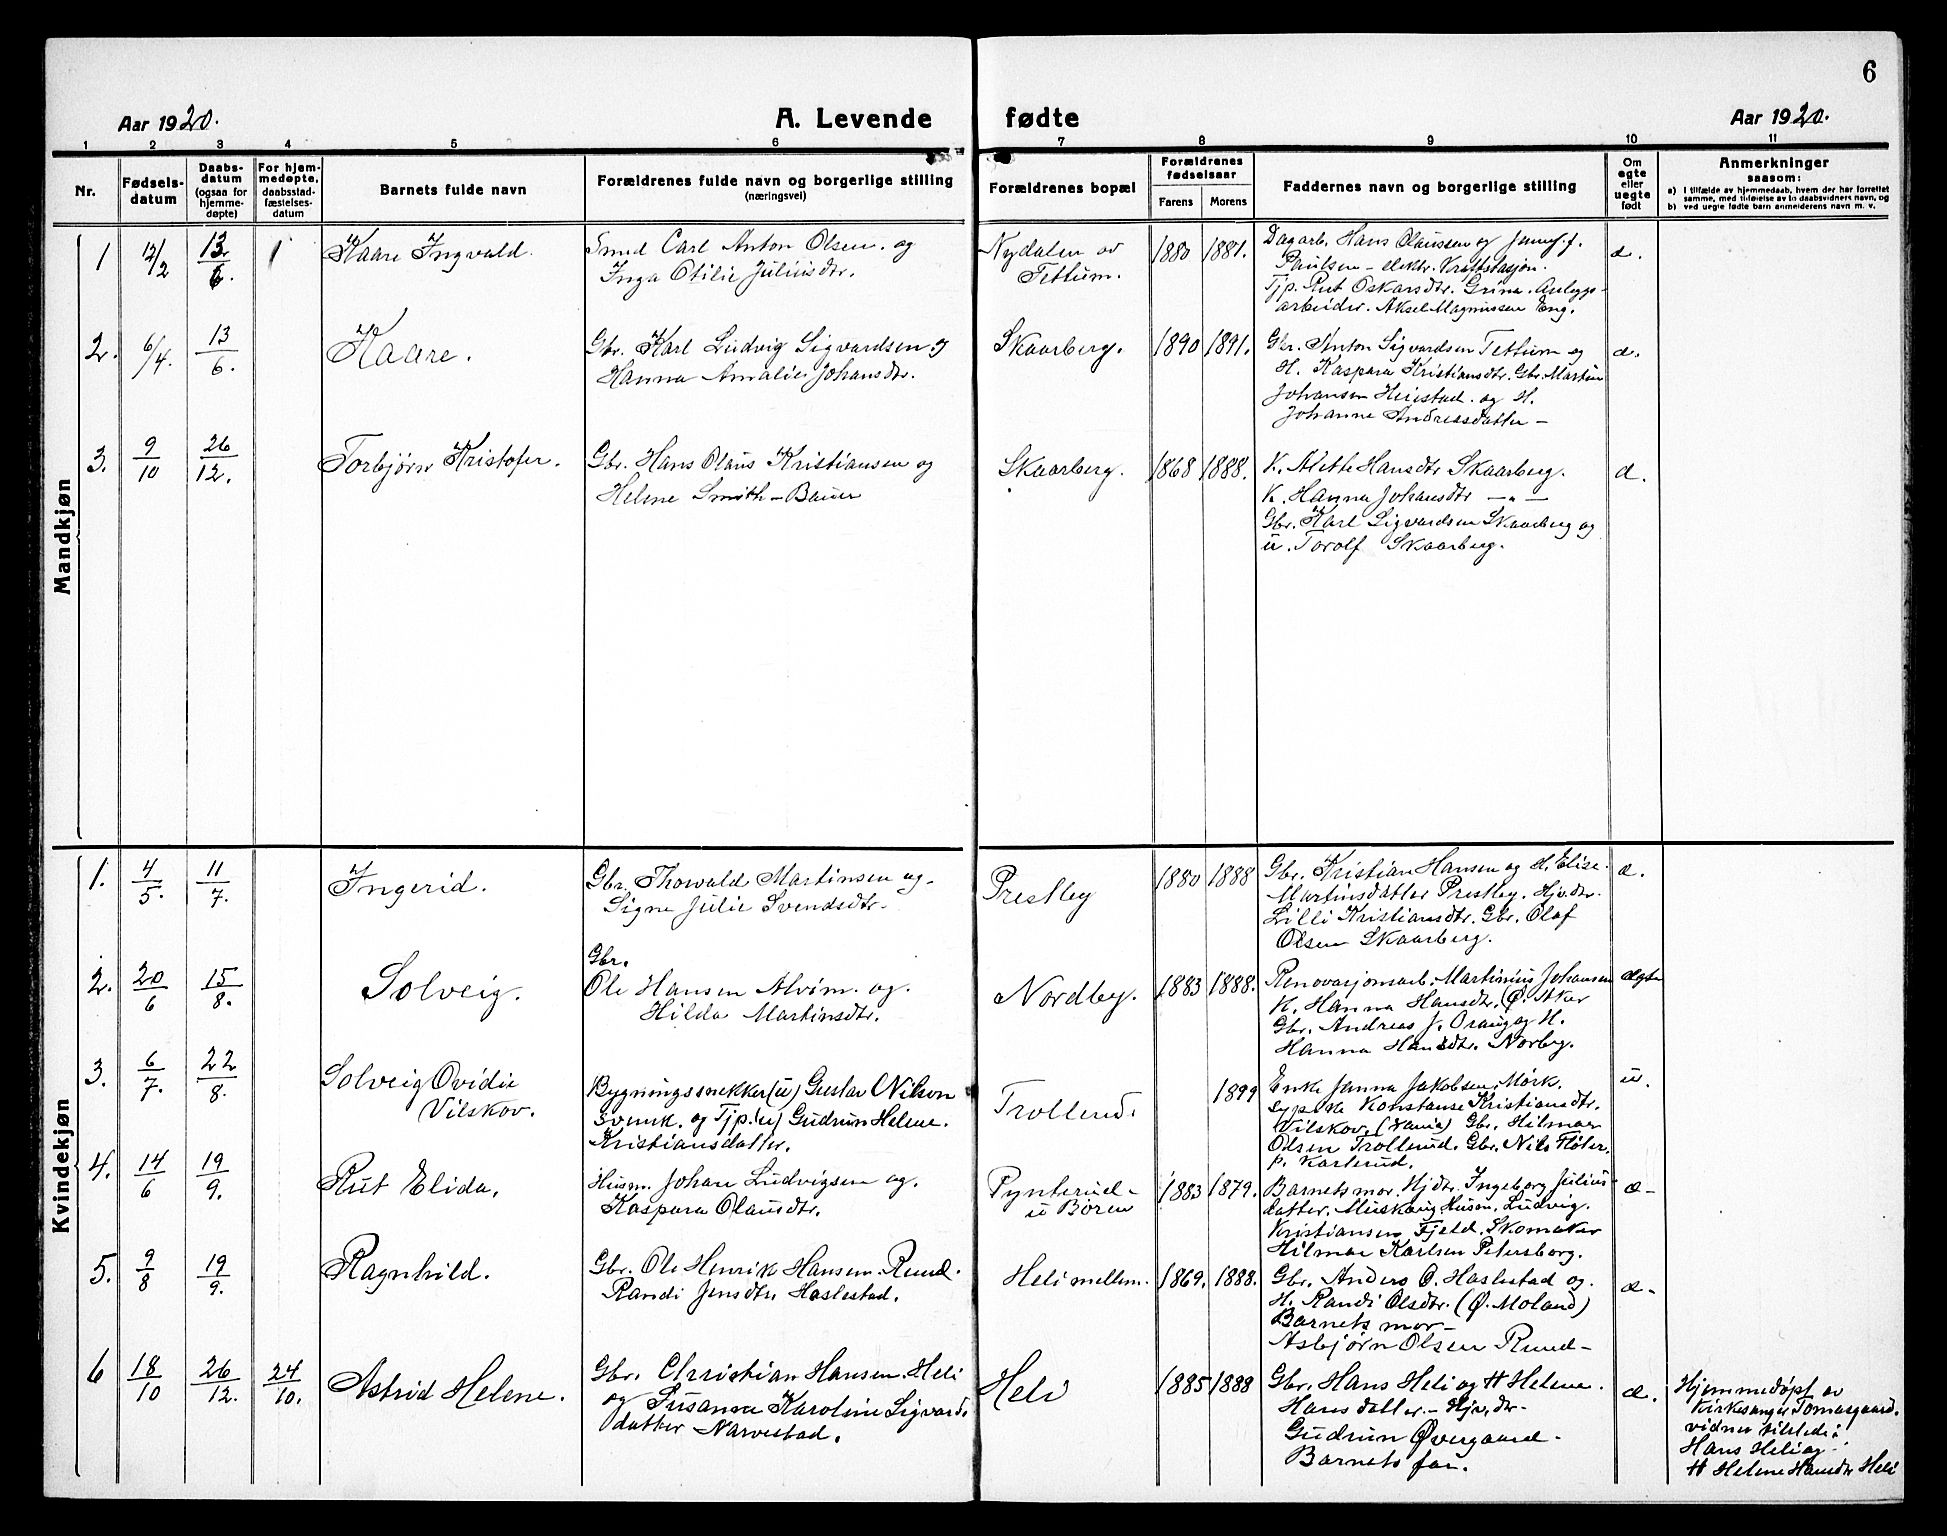 6
Aar 1920.
A. Levende fødte
Aar 1920.
1 2 3 4 5 6 7 8 9 10 11
Nr.
Fødsels-
datum
Daabs-
datum
(ogsaa for
hjemme-
døpte)
For hjem-
medøpte,
daabsstad-
fæstelses-
datum
Barnets fulde navn
Forældrenes fulde navn og borgerlige stilling
(næringsvei)
Forældrenes bopæl
Forældrenes
fødselsaar
Farens Morens
Faddernes navn og borgerlige stilling
Om
ægte
eller
uegte
født
Anmerkninger
saasom:
a) i tilfælde av hjemmedaab, hvem der har forrettet
samme, med tilføielse av to daabsvidners navn, og
b) ved uegte fødte barn anmelderens navn m. v.
Mandkjøn
1 12/2 13/6. 1
Kaare Ingvald.
Smed Carl Anton Olsen. og
Inga Otilie Juliusdtr.
Nydalen av
Tettum.
1880 1881.
Dagarb. Hans Olaussen og
Paulsen – elektr. Kraftstasjon.
Tjp. Rut Oskarsdtr. Grina. Anlegs-
arbeider. Aksel Magnussen Eng.
æ.
2. 6/4. 13/6.
Kaare.
Gbr. Karl Ludvig Sigvardsen og
Hanna Amalie Johansdtr.
Skaarberg.
1890 1891.
Gbr. Anton Sigvardsen Tettum og
H. Kaspara Kristiansdtr. Gbr. Martin
Johansen Heiestad. og H.
Johanne Andreasdatter –
æ.
3. 9/10 26/12.
Torbjørn Kristofer.
Gbr. Hans Olaus Kristiansen og
Helene Smith-Bauer
Skaarberg.
1868 1888.
K. Alette Hansdtr Skaarberg.
K. Hanna Johansdtr — " —
Gbr. Karl Sigvardsen Skaarberg og
u. Torolf Skaarberg.
æ.
Kvindekjøn
1. 4/5. 11/7.
Ingerid.
Gbr. Thorvald Martinsen og
Signe Julie Svendsdtr.
Prestby
1880 1888
Gbr. Kristian Hansen og H. Elise
Martinsdatter Prestby. Hjv.dtr.
Lilli Kristiansdtr. Gbr. Olaf
Olsen Skaarberg.
æ.
2. 20/6 15/8.
Solveig.
Gbr.
Ole Hansen Alvim. og.
Hilda Martinsdtr.
Nordby.
1883 1888.
Renovasjonsarb. Martinius Johansen
K. Hanna Hansdtr. Ø. Aker
Gbr. Andreas J. Oraug og H.
Hanna Hansdtr. Norby.
ægte
3. 6/7. 22/8.
Solveig Ovidie
Vilskov.
Bygningssnekker (u) Gustav Nilson
svensk. og Tjp. (u) Gudrun Helene.
Kristiansdatter.
Trollerud.
1899
Enke Janna Jakobsen, Mørk.
Sypike Konstanse Kristiansdtr.
Vilskov. Gbr. Hilmar
Olsen Trollerud. Gbr. Nils Fløter.
p. Karlsrud.
u.
4. 14/6 19/9.
Rut Elida.
Husm. Johan Ludvigsen og.
Kaspara Olausdtr.
Pynterud-
u Børen
1883 1879.
Barnets mor. Hjdtr. Ingeborg Julius-
datter. Husm. Ludvig.
Kristiansen Fjeld. Skomaker
Hilmar Karlsen Petersborg.
æ-
5. 9/8 19/9.
Ragnhild.
Gbr. Ole Henrik Hansen Ruud.
Randi Jensdtr Haslestad.
Heli mellem.
1869. 1888.
Gbr. Anders O. Haslestad og.
H. Randi Olsdtr. (Ø. Moland)
Barnets mor –
Asbjørn Olsen Ruud –
æ-
6 18/10 26/12. 24/10.
Astrid Helene.
Gbr. Christian Hansen. Heli
og Susanna Karoline Sigvards
datter Narvestad.
Heli
1885 1888
Gbr. Hans Heli og H Helene.
Hansdatter. – Hjv.dtr –
Gudrun Øvergaard –
Barnets far.
æ.
Hjemmedøpt av
Kirkesanger Tomasgaard.
vidner tilstede:
Hans Heli og
H Helene Hansdtr Heli